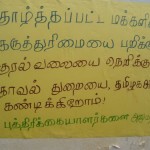 தாழ்த்தப்பட்ட மக்களின்
கருத்துரிமையை பறிக்
குரல் வளையை நெரிக்கு
காவல் துறையை, தமிழக
கண்டிக்கிறோம்!
பத்திரிக்கையாளர்களை